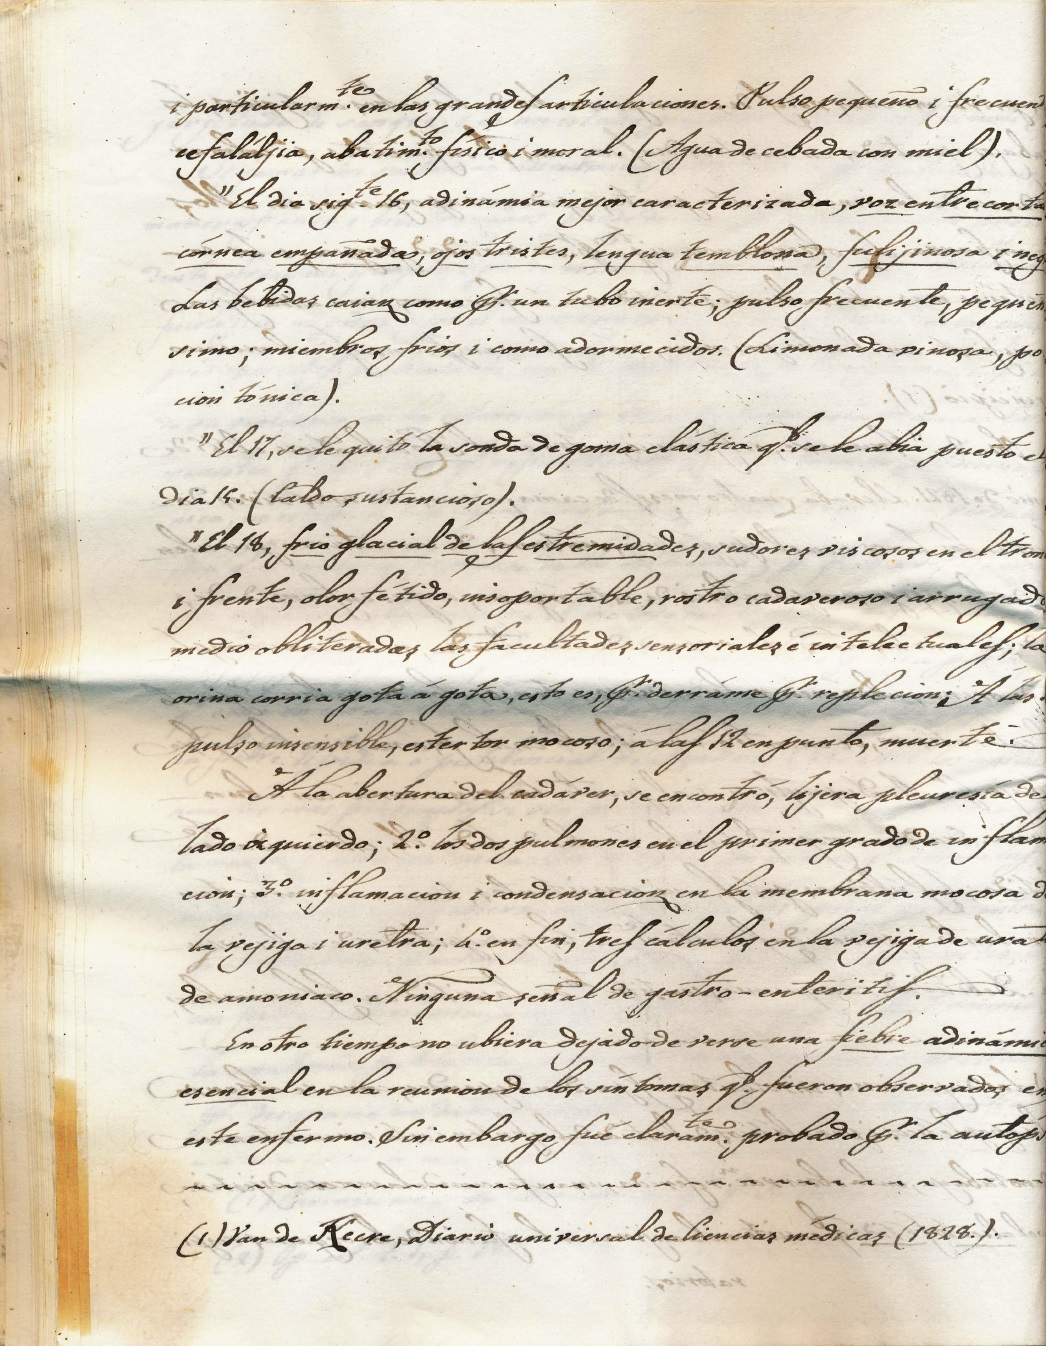 i particularm.te en las grandes articulaciones. Pulso pequeño i frecuen
cefaláljia, abatim.to físico i moral. (Agua de cebada con miel).
"El dia sig.te 16, adinámia mejor caracterizada, voz entrecorta
córnea empañada, ojos tristes, lengua temblona, fulijinosa i neg
Las bebidas caian como p.r un tubo inerte; pulso frecuente, pequeñ
simo; miembros frios i como adormecidos. (Limonada vinosa, po
cion tónica).
"El 17, se le quitó la sonda de goma elástica q.e se le abia puesto e
dia 15. (Caldo sustancioso).
"El 18, frio glacial de las estremidades, sudores viscosos en el tron
i frente, olor fétido, insoportable, rostro cadaveroso i arrugado
medio obliteradas las facultades sensoriales é intelectuales; la
orina corria gota á gota, esto es, p.r derráme p.r replecion; Á las
pulso insensible, estertor mocoso; á las 12 en punto, muerte.
Á la abertura del cadáver, se encontró, lijera pleuresía de
lado izquierdo; 2.o los dos pulmones en el primer grado de inflam
cion; 3.o inflamacion i condensacion en la membrana mocosa d
la vejiga i uretra; 4.o en fin, tres cálculos en la vejiga de urat
de amoniaco. Ninguna señal de gastro-enteritis.
En otro tiempo no ubiera dejado de verse una fiebre adinámic
esencial en la reunion de los síntomas q.e fueron observados en
este enfermo. Sin embargo fué claram.te probado p.r la autops
(1.) Van de Keere, Diario universal de Ciencias médicas (1828.).